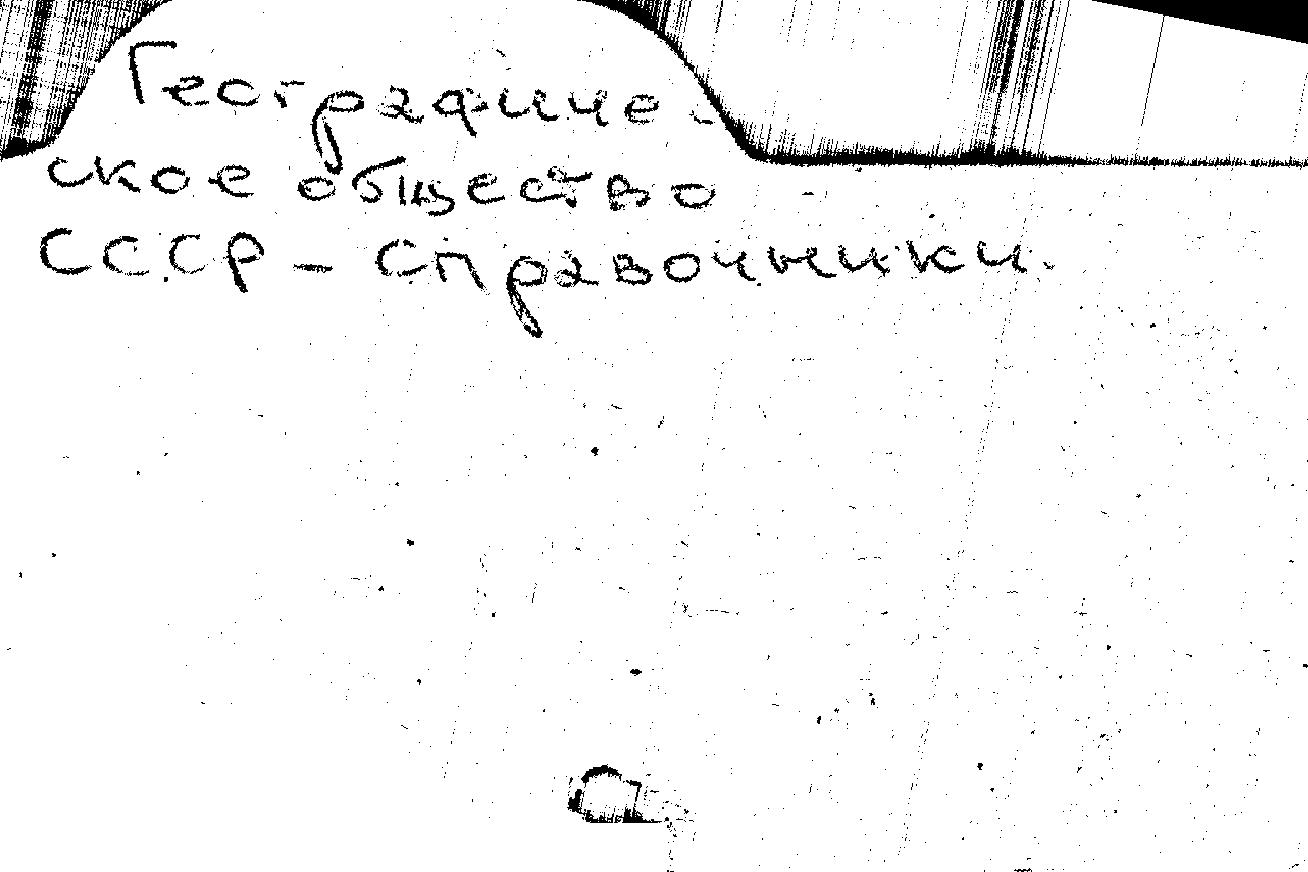 Географиче-
ское общество
СССР - Справочники.